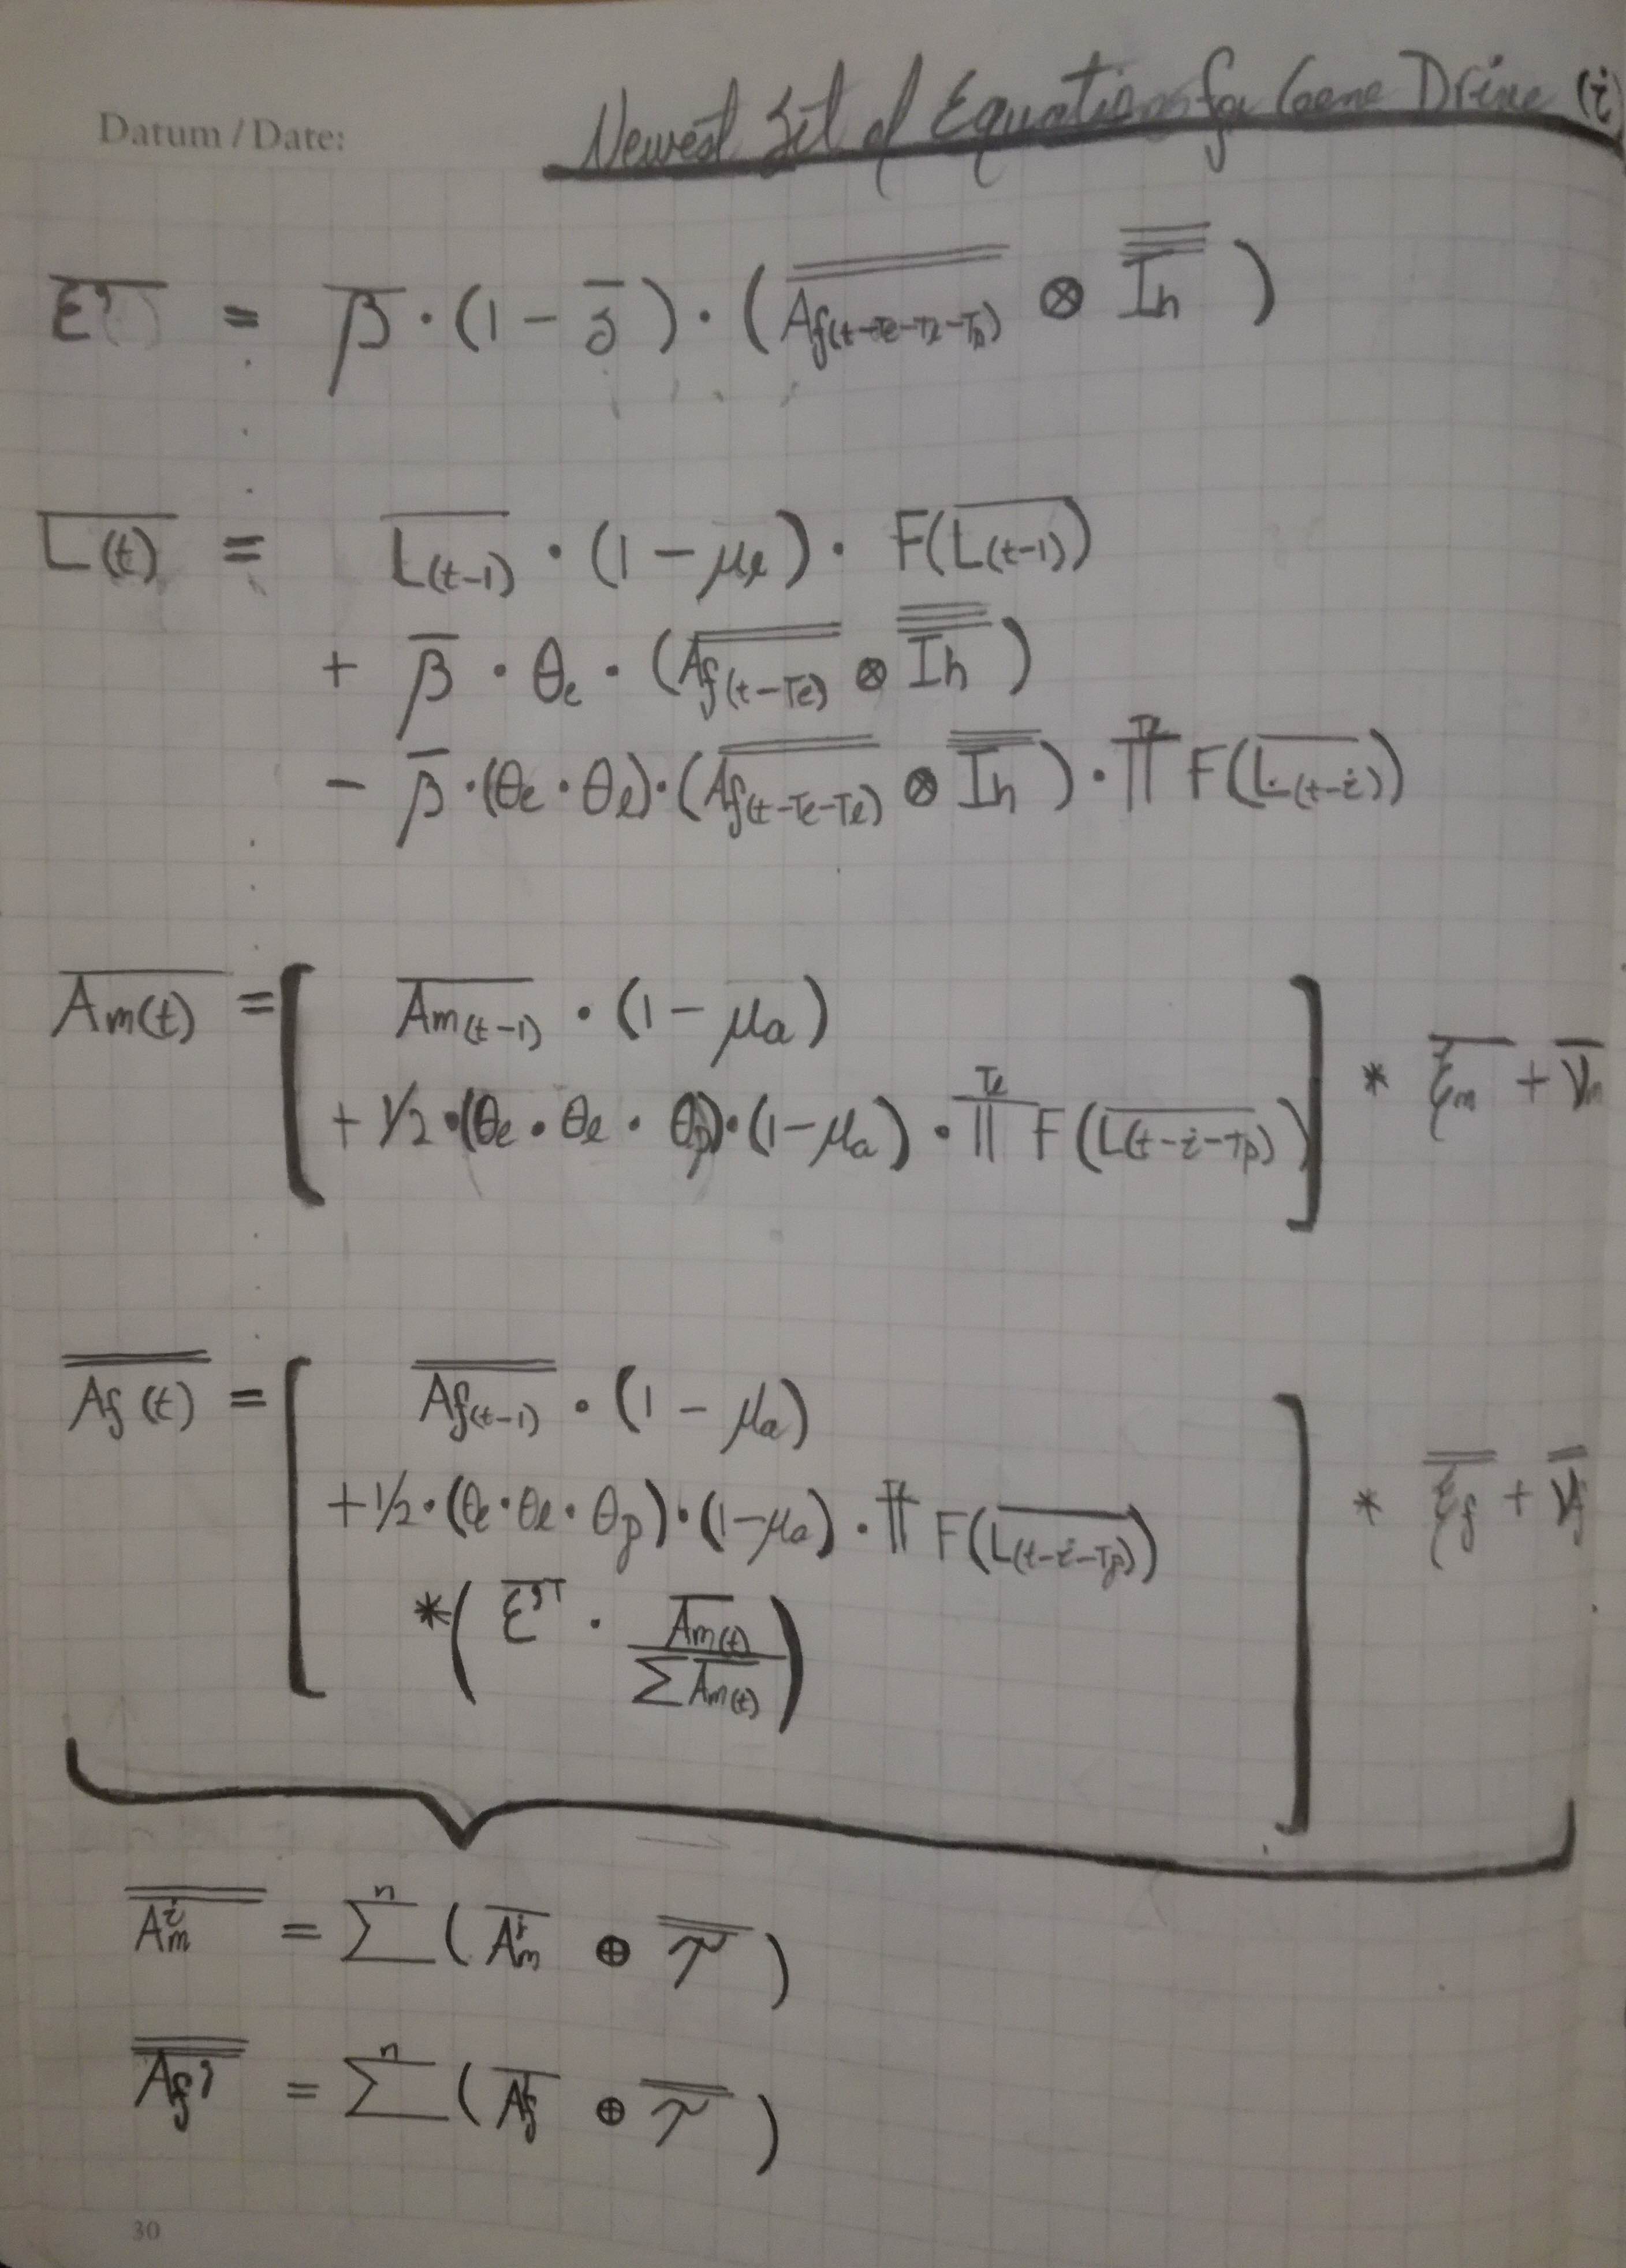 Datum / Date:
Newest Set of Equations for Gene Drive (i)
= β̅ · (1 − ) · (A̿f(t−Te−Tl−Tp) ⊗ I̿h)
L̅(t) = L̅(t−1) · (1 − μl) · F(L̅(t−1))
+ β̅ · θe · (A̿f(t−Te) ⊗ I̿h)
− β̅ · (θe · θl) · (A̿f(t−Te−Tl) ⊗ I̿h) · ∏^Tl F(L̅(t−i))
A̅m(t) = [ A̅m(t−1) · (1 − μa)
+ 1/2 · (θe · θl · θp) · (1 − μa) · ∏^Tl F(L̅(t−i−Tp)) ] * ξ̅m + ν̅m
A̿f(t) = [ A̿f(t−1) · (1 − μa)
+ 1/2 · (θe · θl · θp) · (1 − μa) · ∏ F(L̅(t−i−Tp)) ] * ξ̿f + ν̿f
* ( · A̅m(t) / ∑A̅m(t))
A̿m^i = ∑^n (A̅m ⊕ )
A̿f = ∑^n (A̅f ⊕ )
30